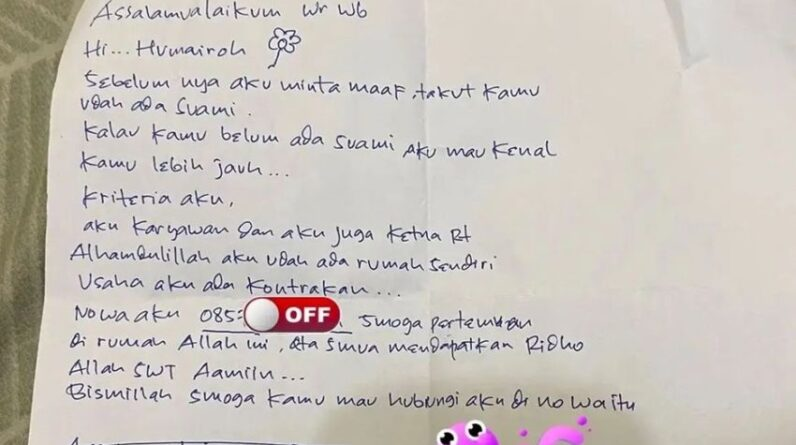 Assalamualaikum wr wb
Hi... Humairoh
Sebelum nya aku minta maaf, takut kamu
udah ada suami.
Kalau kamu belum ada suami aku mau kenal
kamu lebih jauh...
Kriteria aku,
aku karyawan dan aku juga ketua Rt
Alhamdulillah aku udah ada rumah sendiri
Usaha aku ada kontrakan...
No wa aku 085 OFF smoga pertemuan
di rumah Allah ini, kita smua mendapatkan Ridho
Allah SWT Aamiin...
Bismillah smoga kamu mau hubungi aku di no wa itu